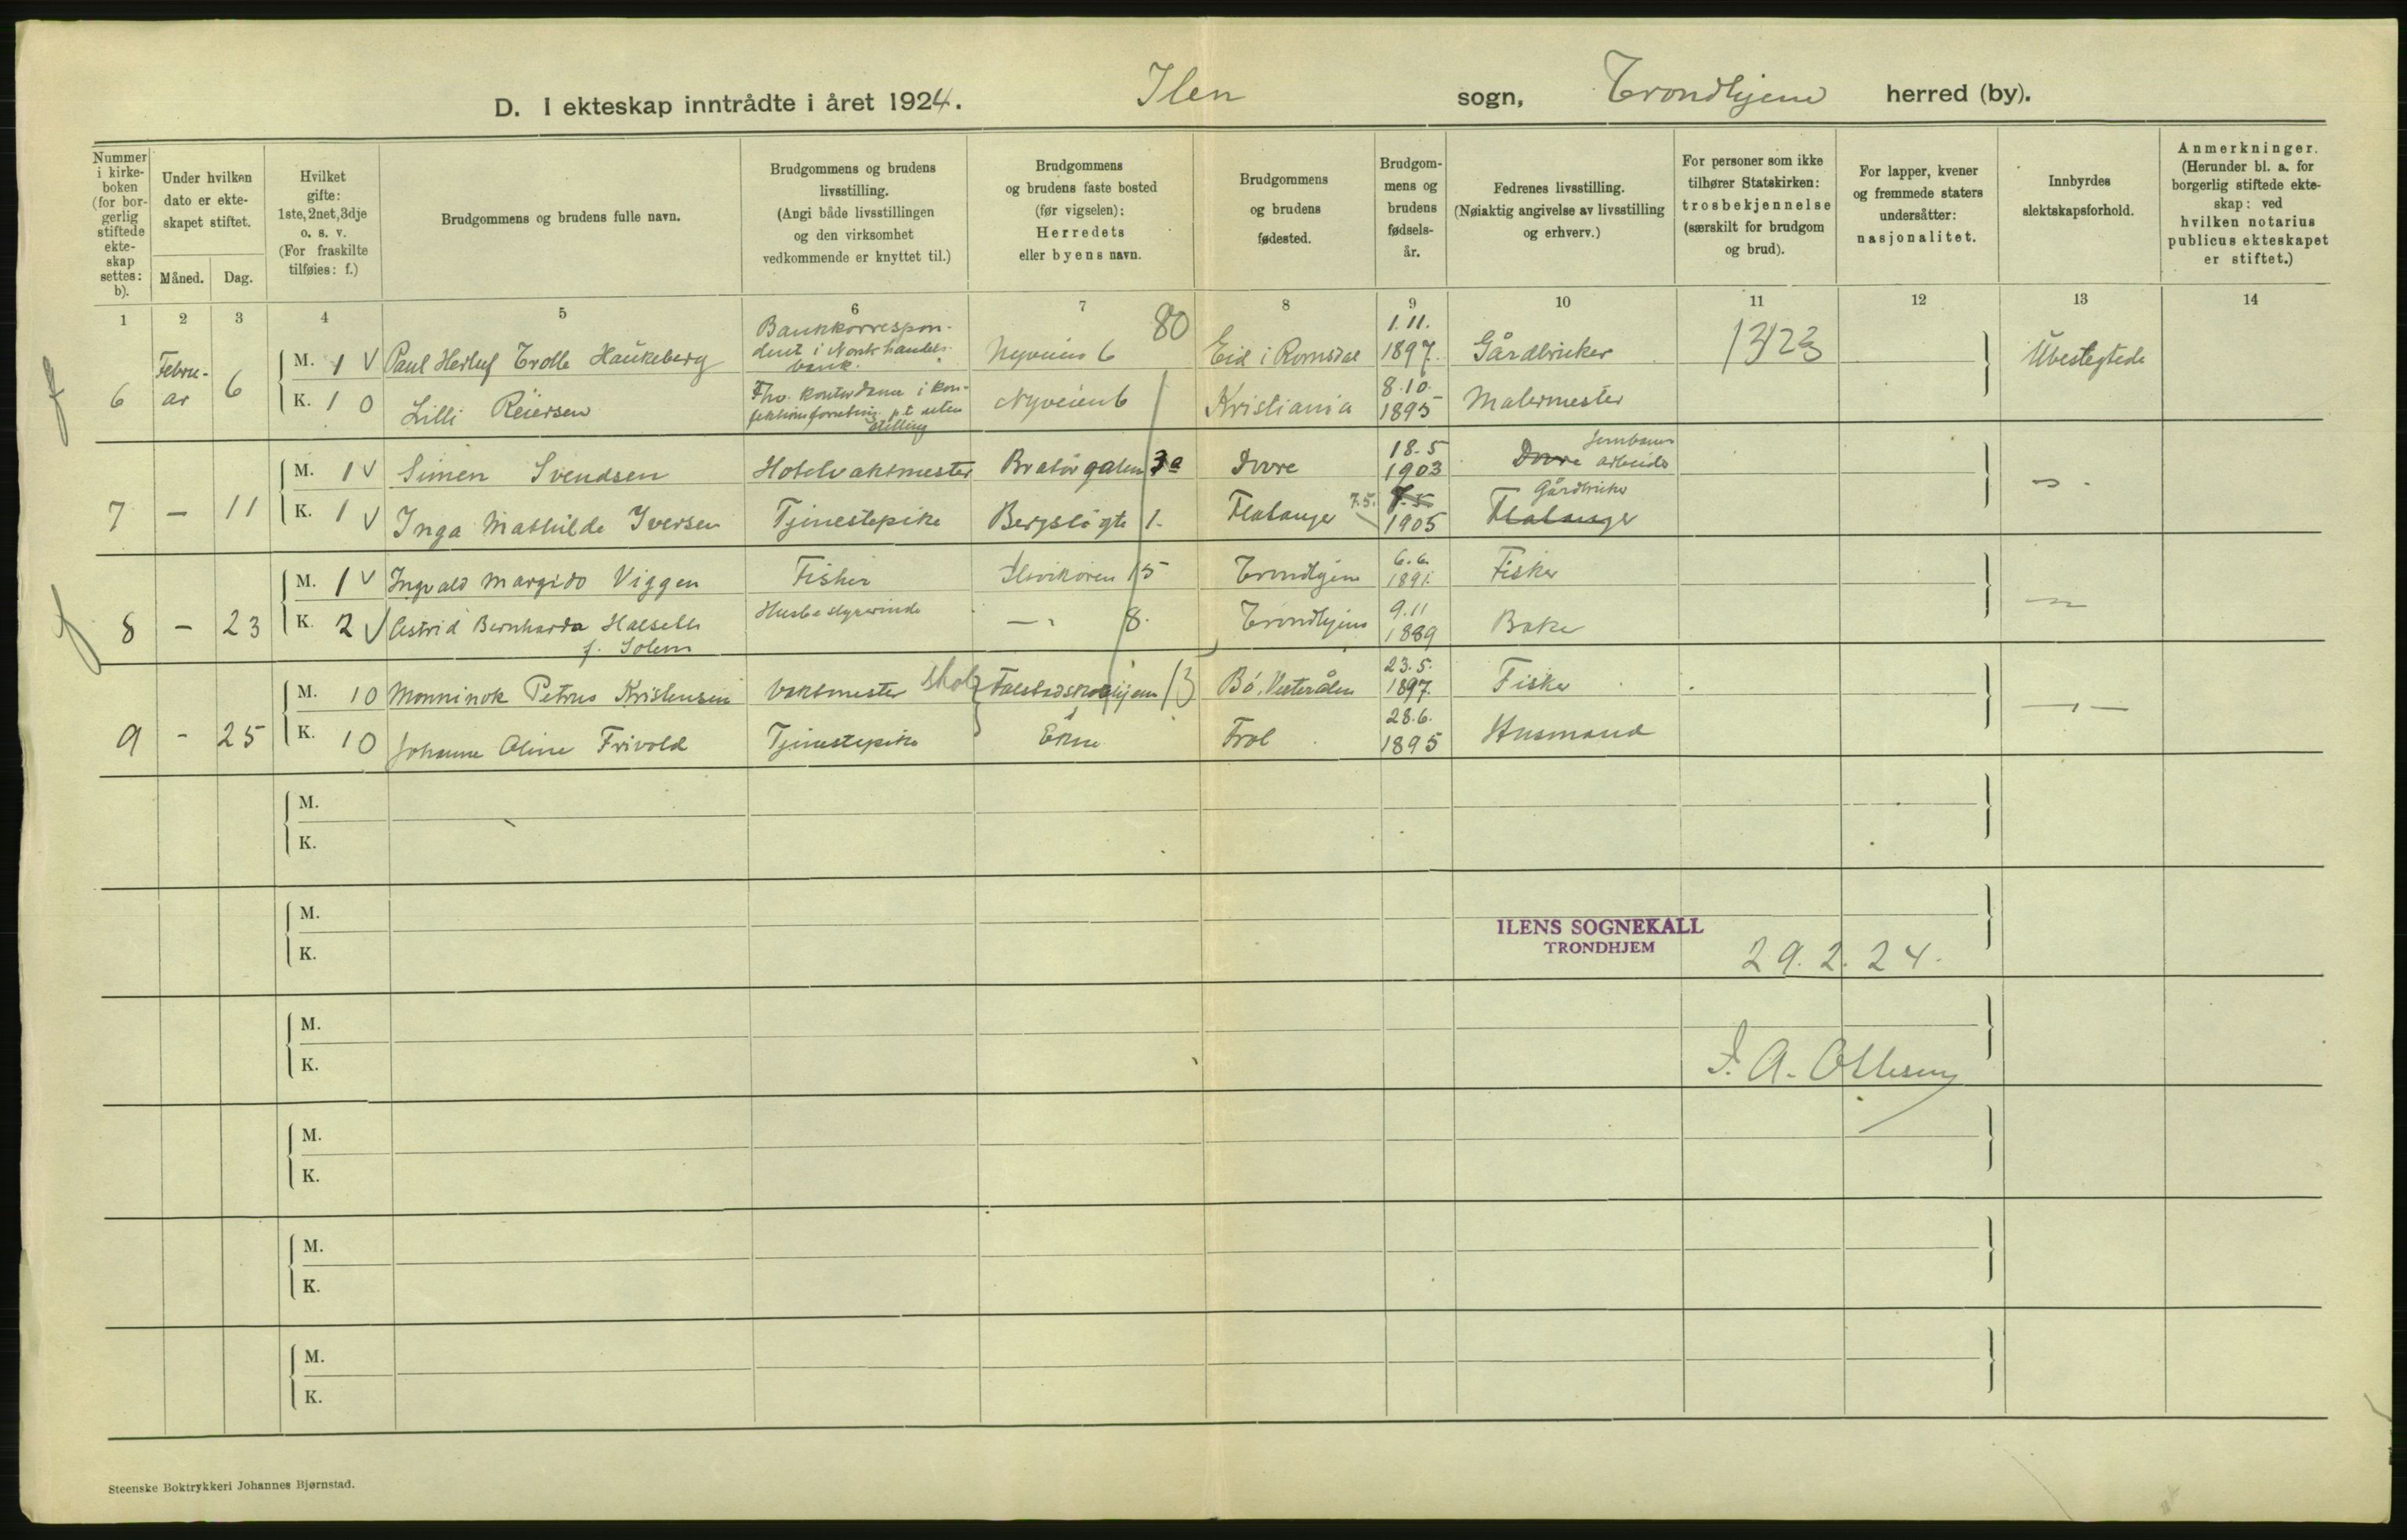 D. I ekteskap inntrådte i året 1924. Ilen sogn, Trondhjem herred (by).
Nummer i kirke-boken (for bor-gerlig stiftede ekte-skap settes: b).
Under hvilken dato er ekte-skapet stiftet.
Måned. Dag.
Hvilket gifte: 1ste, 2net, 3dje o. s. v. (For fraskilte tilføies: f.)
Brudgommens og brudens fulle navn.
Brudgommens og brudens livsstilling. (Angi både livsstillingen og den virksomhet vedkommende er knyttet til.)
Brudgommens og brudens faste bosted (før vigselen): Herredets eller byens navn.
Brudgommens og brudens fødested.
Brudgom-mens og brudens fødsels-år.
Fedrenes livsstilling. (Nøiaktig angivelse av livsstilling og erhverv.)
For personer som ikke tilhører Statskirken: trosbekjennelse (særskilt for brudgom og brud).
For lapper, kvener og fremmede staters undersåtter: nasjonalitet.
Innbyrdes slektskapsforhold.
Anmerkninger. (Herunder bl. a. for borgerlig stiftede ekte-skap: ved hvilken notarius publicus ekteskapet er stiftet.)
1 2 3 4 5 6 7 8 9 10 11 12 13 14
80
6 Febru-ar 6 M. 1 V Paul Herluf Trolle Haukeberg Bankkorrespon-dent i Norsk handels-bank. Nyveien 6 Eid i Romsdal 1.11. 1897. Gårdbruker 1323 Übeslegtede
K. 1 0 Lilli Reiersen Fhv. kontordame i kon- Nyveien 6 Kristiania 8.10. 1895 Malermester
7 — 11 M. 1 V Simen Svendsen Hotelvaktmester Bratørgaten 3a Dovre 18.5 1903 Dovre Jernbane arbeider
K. 1 V Inga Mathilde Iversen Tjenestepike Bergsligt 1. Flatanger 7.5. 7.5 1905 Gårdbruker Flatanger
8 — 23 M. 1 V Ingvald Margido Viggen Fisker Ilsvikøren 15 Trondhjem 6.6. 1891. Fisker
K. 2 V Astrid Bernharda Halseth f. Solem Husbestyrerinde — " 8. Trondhjem 9.11 1889 Baker
9 - 25 M. 10 Monninok Petrus Kristensen Vaktmester skole Falstadskolehjem 13 Bø, Vesterålen 23.5. 1897. Fisker
K. 10 Johanne Oline Frivold Tjenestepike Ekne Frol 28.6. 1895 Husmand
M.
K.
M.
ILENS SOGNEKALL
TRONDHJEM
K. 29.2.24.
M.
K.
M.
K.
M.
K.
M.
K.
Steenske Boktrykkeri Johannes Bjørnstad.